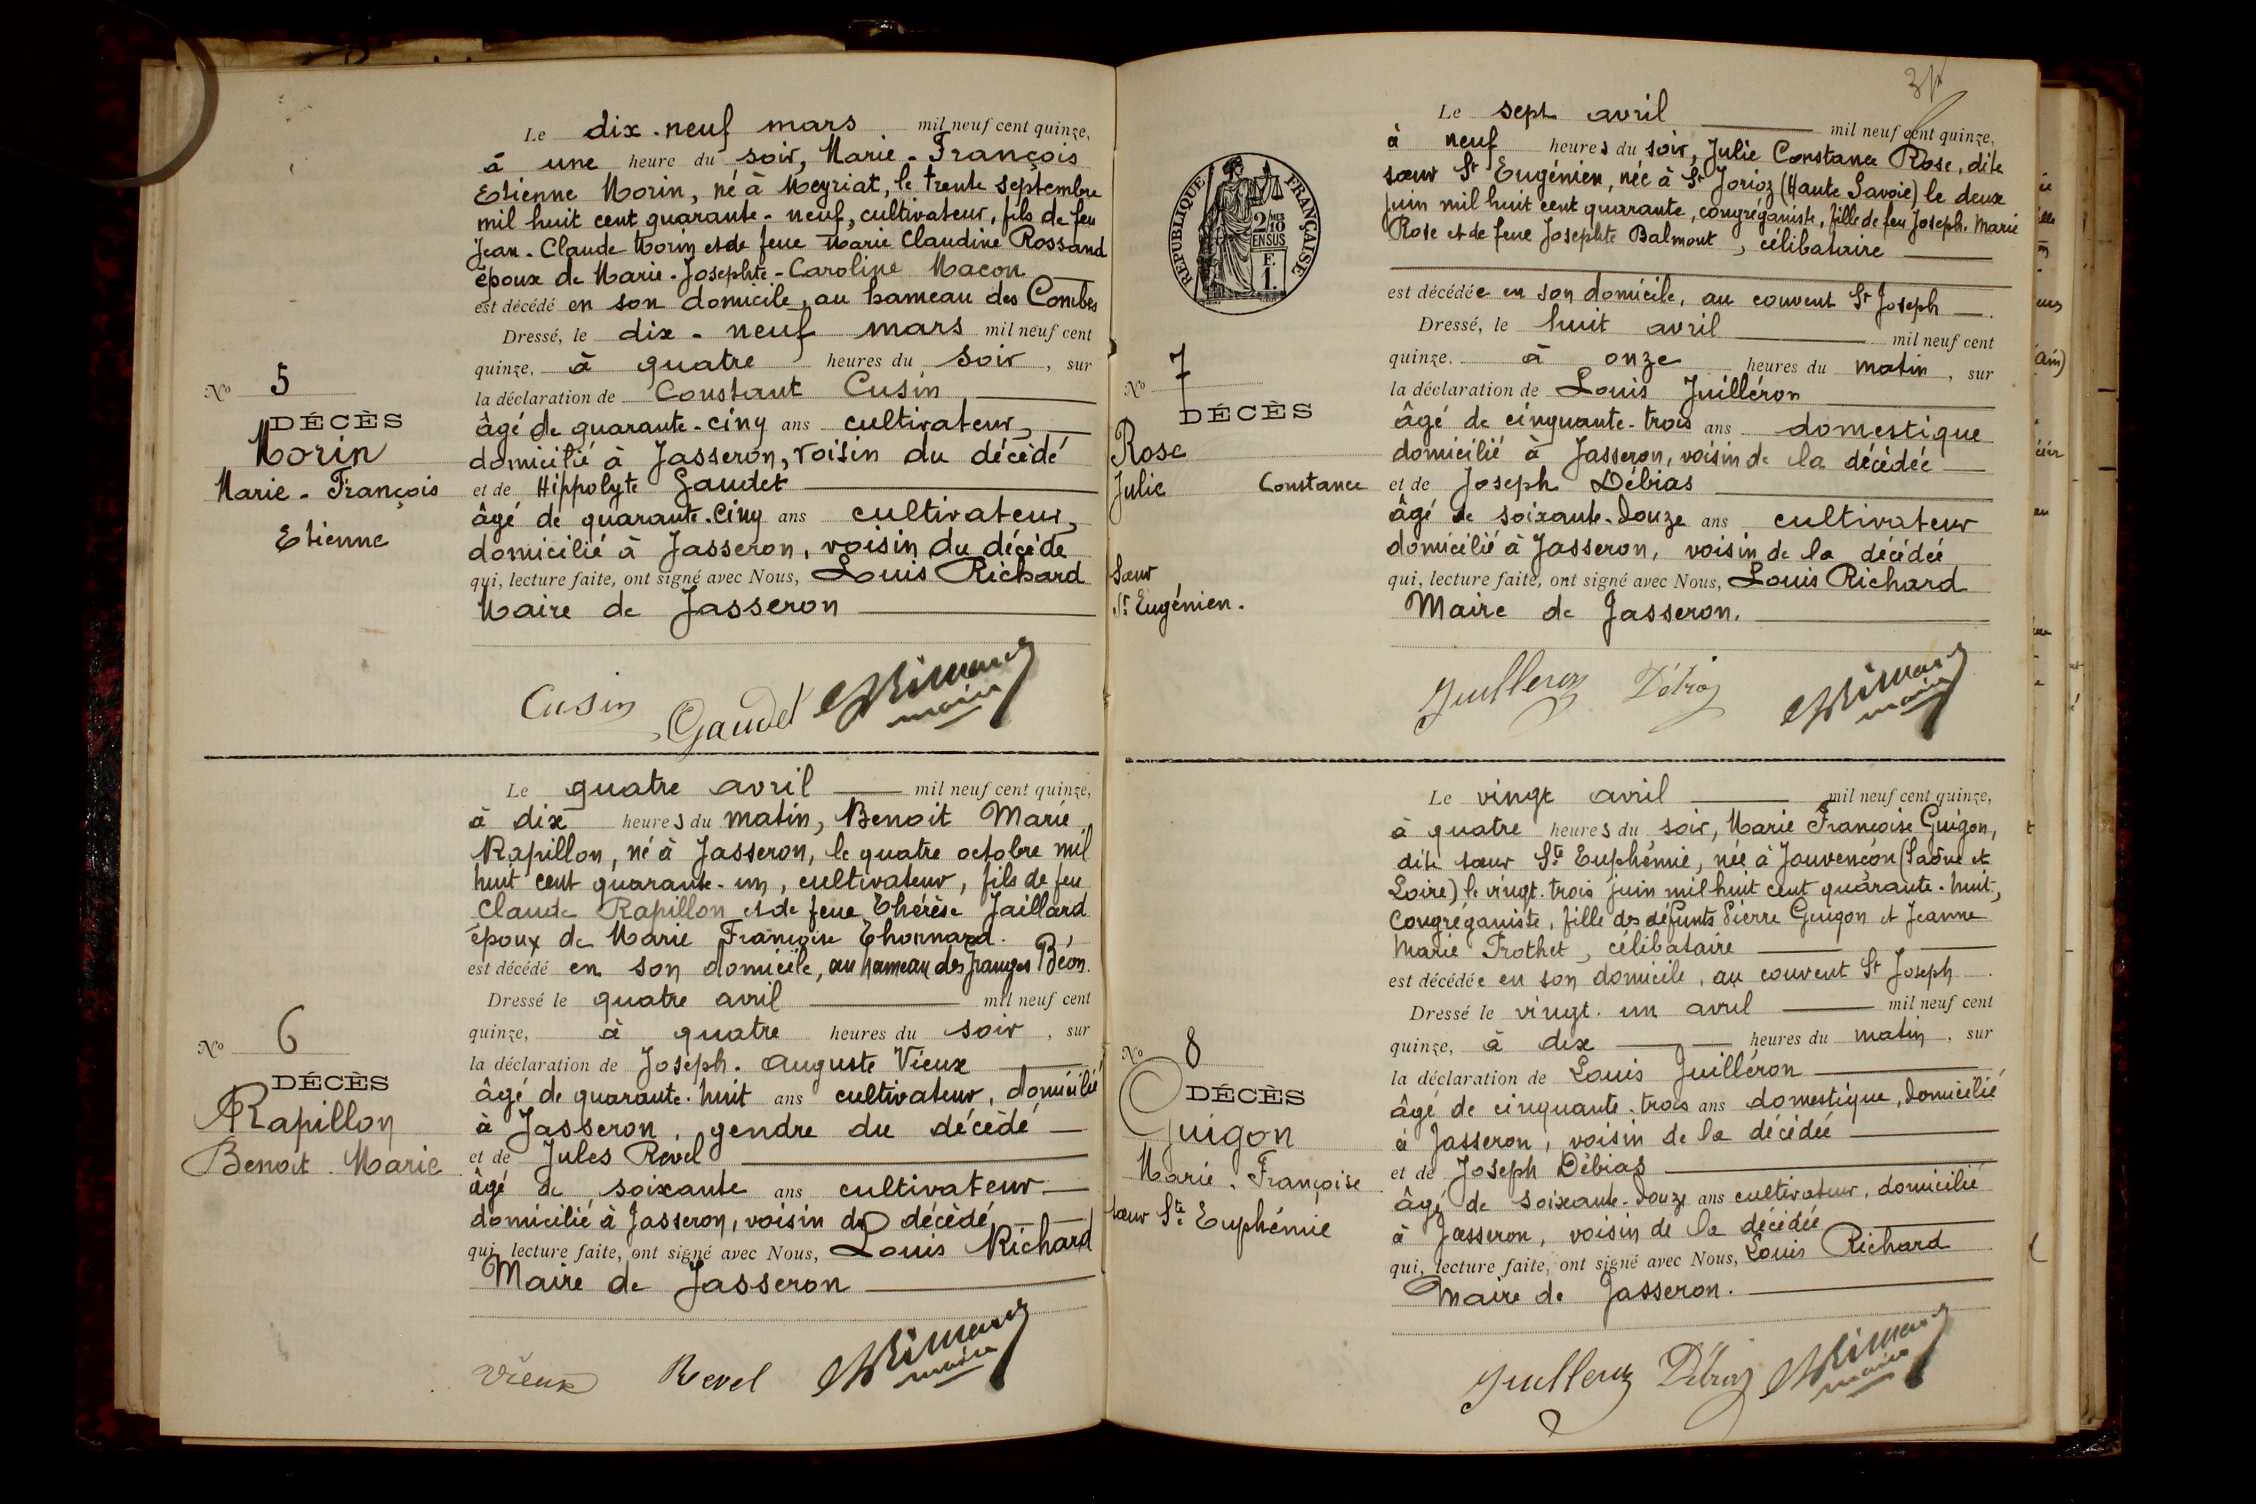 Le dix-neuf mars mil neuf cent quinze,
à une heure du soir, Marie-François
Etienne Morin, né à Meyriat, le trente septembre
mil huit cent quarante-neuf, cultivateur, fils de feu
Jean-Claude Morin et de feue Marie Claudine Rossand
époux de Marie-Josephte-Caroline Macon
est décédé en son domicile, au hameau des Combes
Dressé, le dix-neuf mars mil neuf cent
quinze, à quatre heures du soir, sur
No 5
la déclaration de Constant Cusin
DÉCÈS
âgé de quarante-cinq ans cultivateur,
Morin
domicilié à Jasseron, voisin du décédé
Marie-François
et de Hippolyte Gaudet
Etienne
âgé de quarante-cinq ans cultivateur,
domicilié à Jasseron, voisin du décédé
qui, lecture faite, ont signé avec Nous, Louis Richard
Maire de Jasseron
Cusin Gaudet
maire
Le quatre avril mil neuf cent quinze,
à dix heures du matin, Benoit Marie
Rapillon, né à Jasseron, le quatre octobre mil
huit cent quarante-un, cultivateur, fils de feu
Claude Rapillon et de feue Thérèse Jaillard
époux de Marie Françoise Thonnard.
est décédé en son domicile, au hameau des Granges Béon.
Dressé le quatre avril mil neuf cent
No 6
quinze, à quatre heures du soir, sur
la déclaration de Joseph. Auguste Vieux
DÉCÈS
âgé de quarante-huit ans cultivateur, domicilié
Rapillon
à Jasseron, gendre du décédé
Benoit Marie
et de Jules Revel
âgé de soixante ans cultivateur
domicilié à Jasseron, voisin du décédé
qui, lecture faite, ont signé avec Nous, Louis Richard
Maire de Jasseron
Vieux Revel
maire
Le sept avril mil neuf cent quinze,
à neuf heures du soir, Julie Constance Rose, dite
sœur St Eugénien, née à St Jorioz (Haute Savoie) le deux
juin mil huit cent quarante, congréganiste, fille de feu Joseph-Marie
Rose et de feue Josephte Balmont, célibataire
RÉPUBLIQUE FRANÇAISE
2/10 EN SUS
F. 1.
est décédée en son domicile, au couvent St Joseph.
Dressé, le huit avril mil neuf cent
quinze. à onze heures du matin, sur
No 7
la déclaration de Louis Juilléron
DÉCÈS
âgé de cinquante-trois ans domestique
Rose
domicilié à Jasseron, voisin de la décédée
Julie Constance
et de Joseph Débias
âgé de soixante-douze ans cultivateur
domicilié à Jasseron, voisin de la décédée
sœur
qui, lecture faite, ont signé avec Nous, Louis Richard
St Eugénien.
Maire de Jasseron.
Juilleron
maire
Le vingt avril mil neuf cent quinze,
à quatre heures du soir, Marie Françoise Guigon,
dite sœur Ste Euphémie, née à Jouvençon (Saône et
Loire) le vingt-trois juin mil huit cent quarante-huit,
Congréganiste, fille des défunts Pierre Guigon et Jeanne
Marie Trothet, célibataire
est décédée en son domicile, au couvent St Joseph.
Dressé le vingt-un avril mil neuf cent
No 8
quinze, à dix heures du matin, sur
DÉCÈS
la déclaration de Louis Juilléron
âgé de cinquante-trois ans domestique, domicilié
Guigon
à Jasseron, voisin de la décédée
Marie-Françoise
et de Joseph Débias
âgé de soixante-douze ans cultivateur, domicilié
sœur Ste Euphémie
à Jasseron, voisin de la décédée
qui, lecture faite, ont signé avec Nous, Louis Richard
Maire de Jasseron.
Juilleron
maire